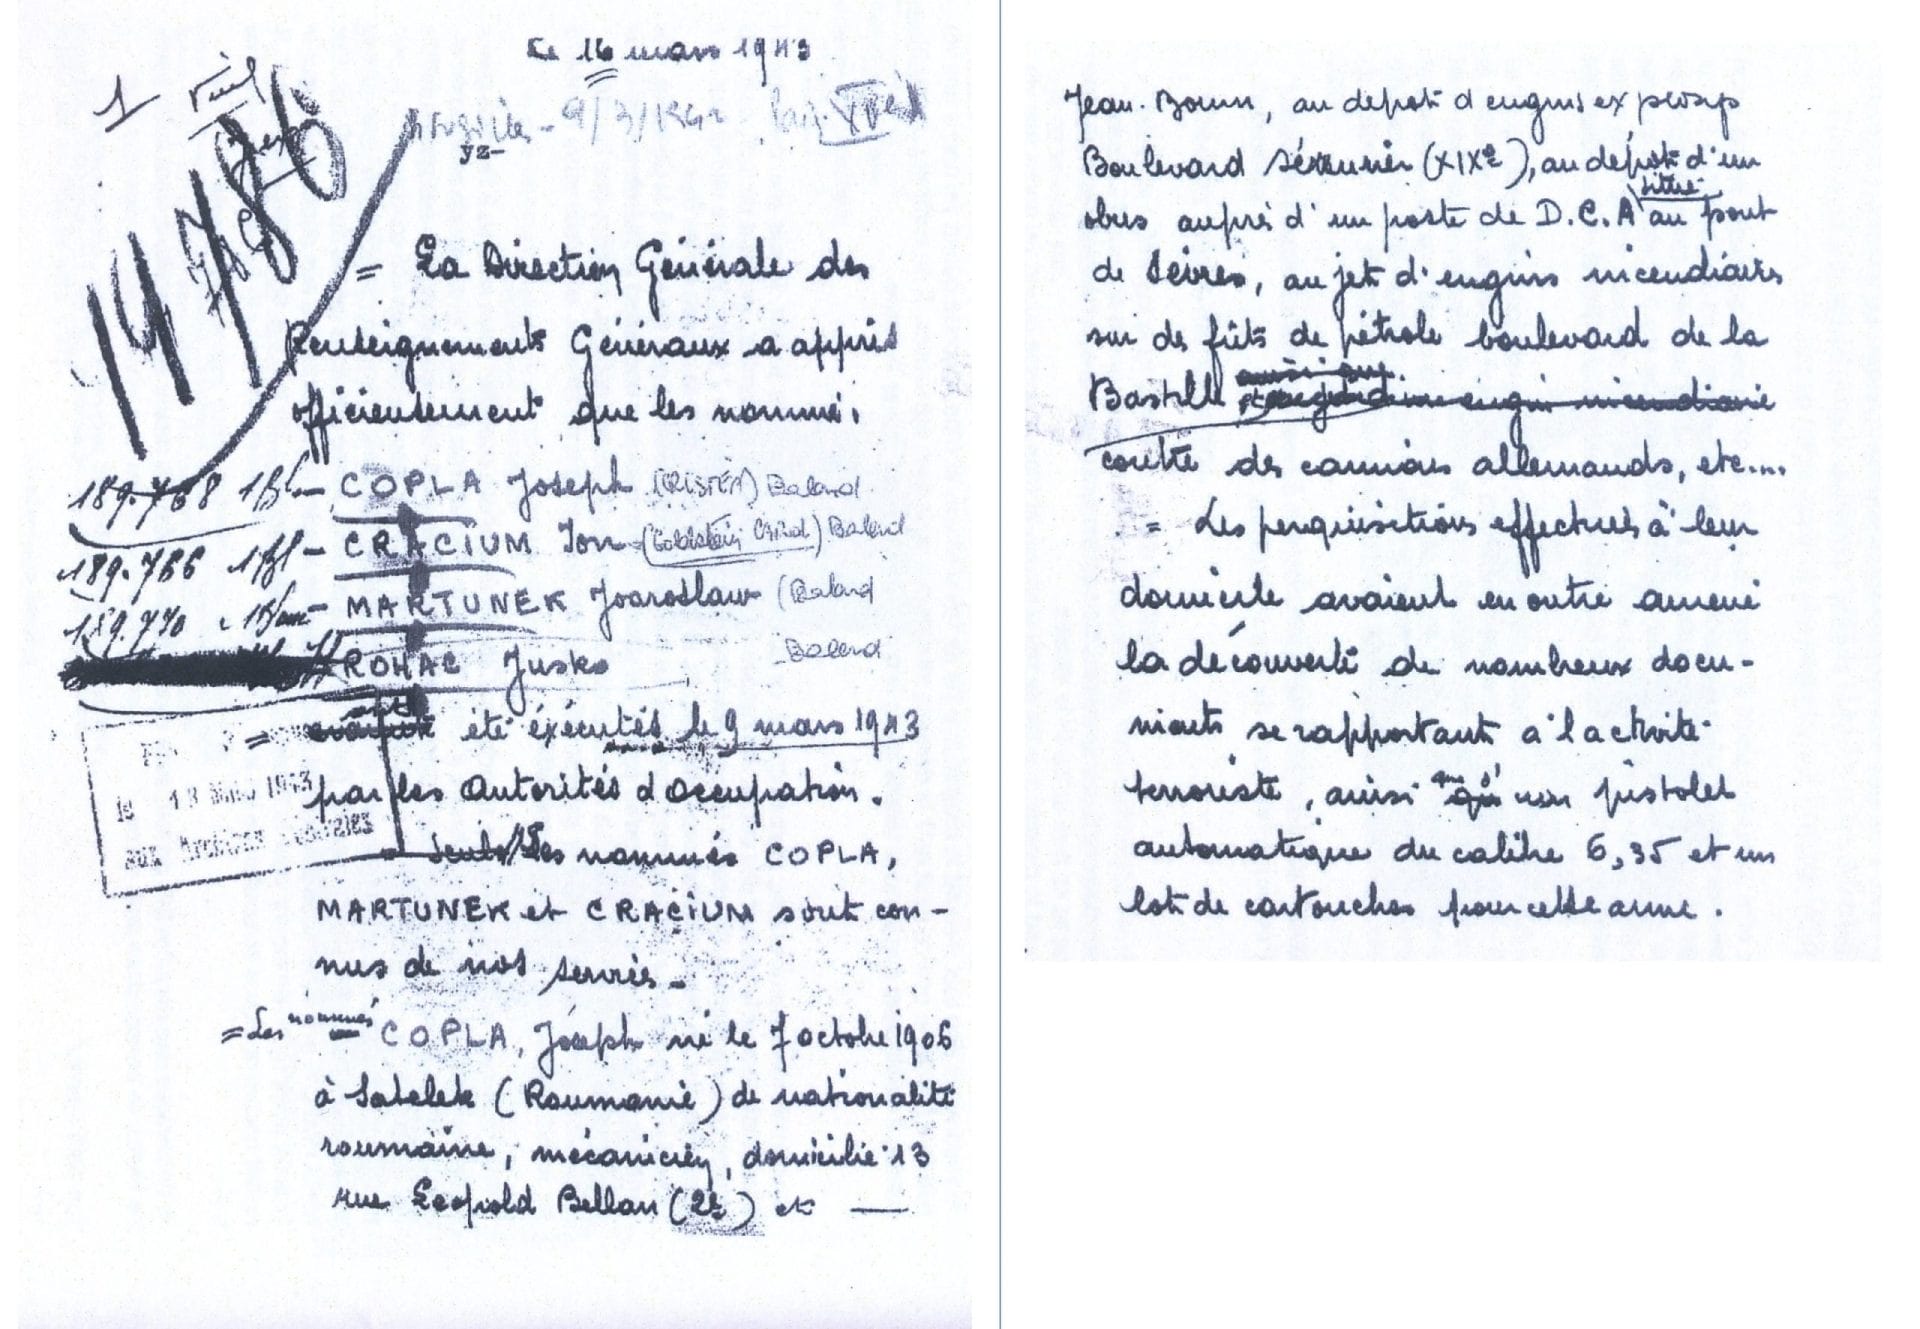 Le 16 mars 1943
1
9/3/194
14786
= La Direction Générale des
Renseignements Généraux a appris
officieusement que les nommés
189.768 – COPLA Joseph Balard
189.766 – CRACIUM Ion (Goldstein) Balard
189.770 – MARTUNEK Joaroslaw (Balard
ROHAC Jusko Balard
= ont été exécutés le 9 mars 1943
par les Autorités d'Occupation.
le 18 Mars 1943
aux Archives
Seuls les nommés COPLA,
MARTUNEK et CRACIUM sont con-
nus de nos services.
= Les nommés COPLA, Joseph né le 7 octobre 1906
à Satelek (Roumanie) de nationalité
roumaine, mécanicien, domicilié 13
rue Léopold Bellan (2e) et —
Jean-Bouin, au dépôt d'engins explosifs
Boulevard Sérurier (XIXe), au dépôt d'un
obus auprès d'un poste de D.C.A situé au pont
de Sèvres, au jet d'engins incendiaires
sur des fûts de pétrole boulevard de la
Bastille
contre des camions allemands, etc....
= Les perquisitions effectués à leur
domicile avaient en outre amené
la découverte de nombreux docu-
ments se rapportant à l'activité
terroriste, ainsi qu'un pistolet
automatique du calibre 6,35 et un
lot de cartouches pour cette arme.